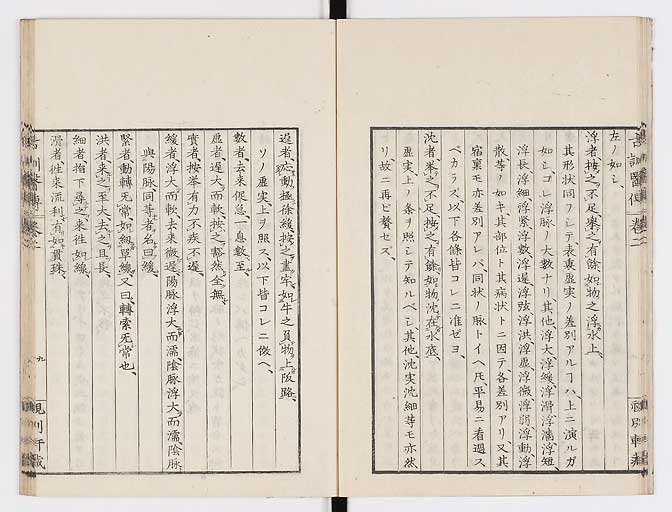 左ノ如シ、
浮者按之不足、擧之有餘、如物之浮水上、
其形状同フシテ、表裏虚実ノ差別アルヿハ、上ニ演ルガ
如シ、コレ浮脉ノ大數ナリ、其他浮大浮緩浮滑浮濇浮短
浮長浮細浮緊浮數浮遲浮弦浮洪浮虚浮微浮弱浮動浮
散等ノ如キ、其部位ト其病状トニ因テ、各差別アリ、又其
宿裏モ亦差別アレバ、同状ノ脉トイヘ𪜈平易ニ看過ス
ベカラス、以下各條皆コレニ准ゼヨ、
沈者、擧之不足、按之有餘、如物沈在水底、
虚実上ノ条ヲ照シテ知ルベシ、其他沈実沈細等モ亦然
リ、故ニ再ビ贅セズ、
遲者、応動極徐緩、按之盡牢、如牛之負物上阪路、
ソノ虚実、上ヲ照ス、以下皆コレニ倣ヘ、
數者、去来促急、一息數至、
虚者、遲大而軟、按之豁然全無、
實者、按挙有力、不疾不遲、
緩者浮大而軟、去来微遲、陽脉浮大而濡、陰脉浮大而濡、陰脉
與陽脉同等者、名曰緩、
緊者、動轉无常、如紉箄線、又曰、轉索无常也、
洪者、来之至大、去之且長、
細者、指下尋之、来徃如線、
滑者、徃来流利、有如貫珠、
卷二
九